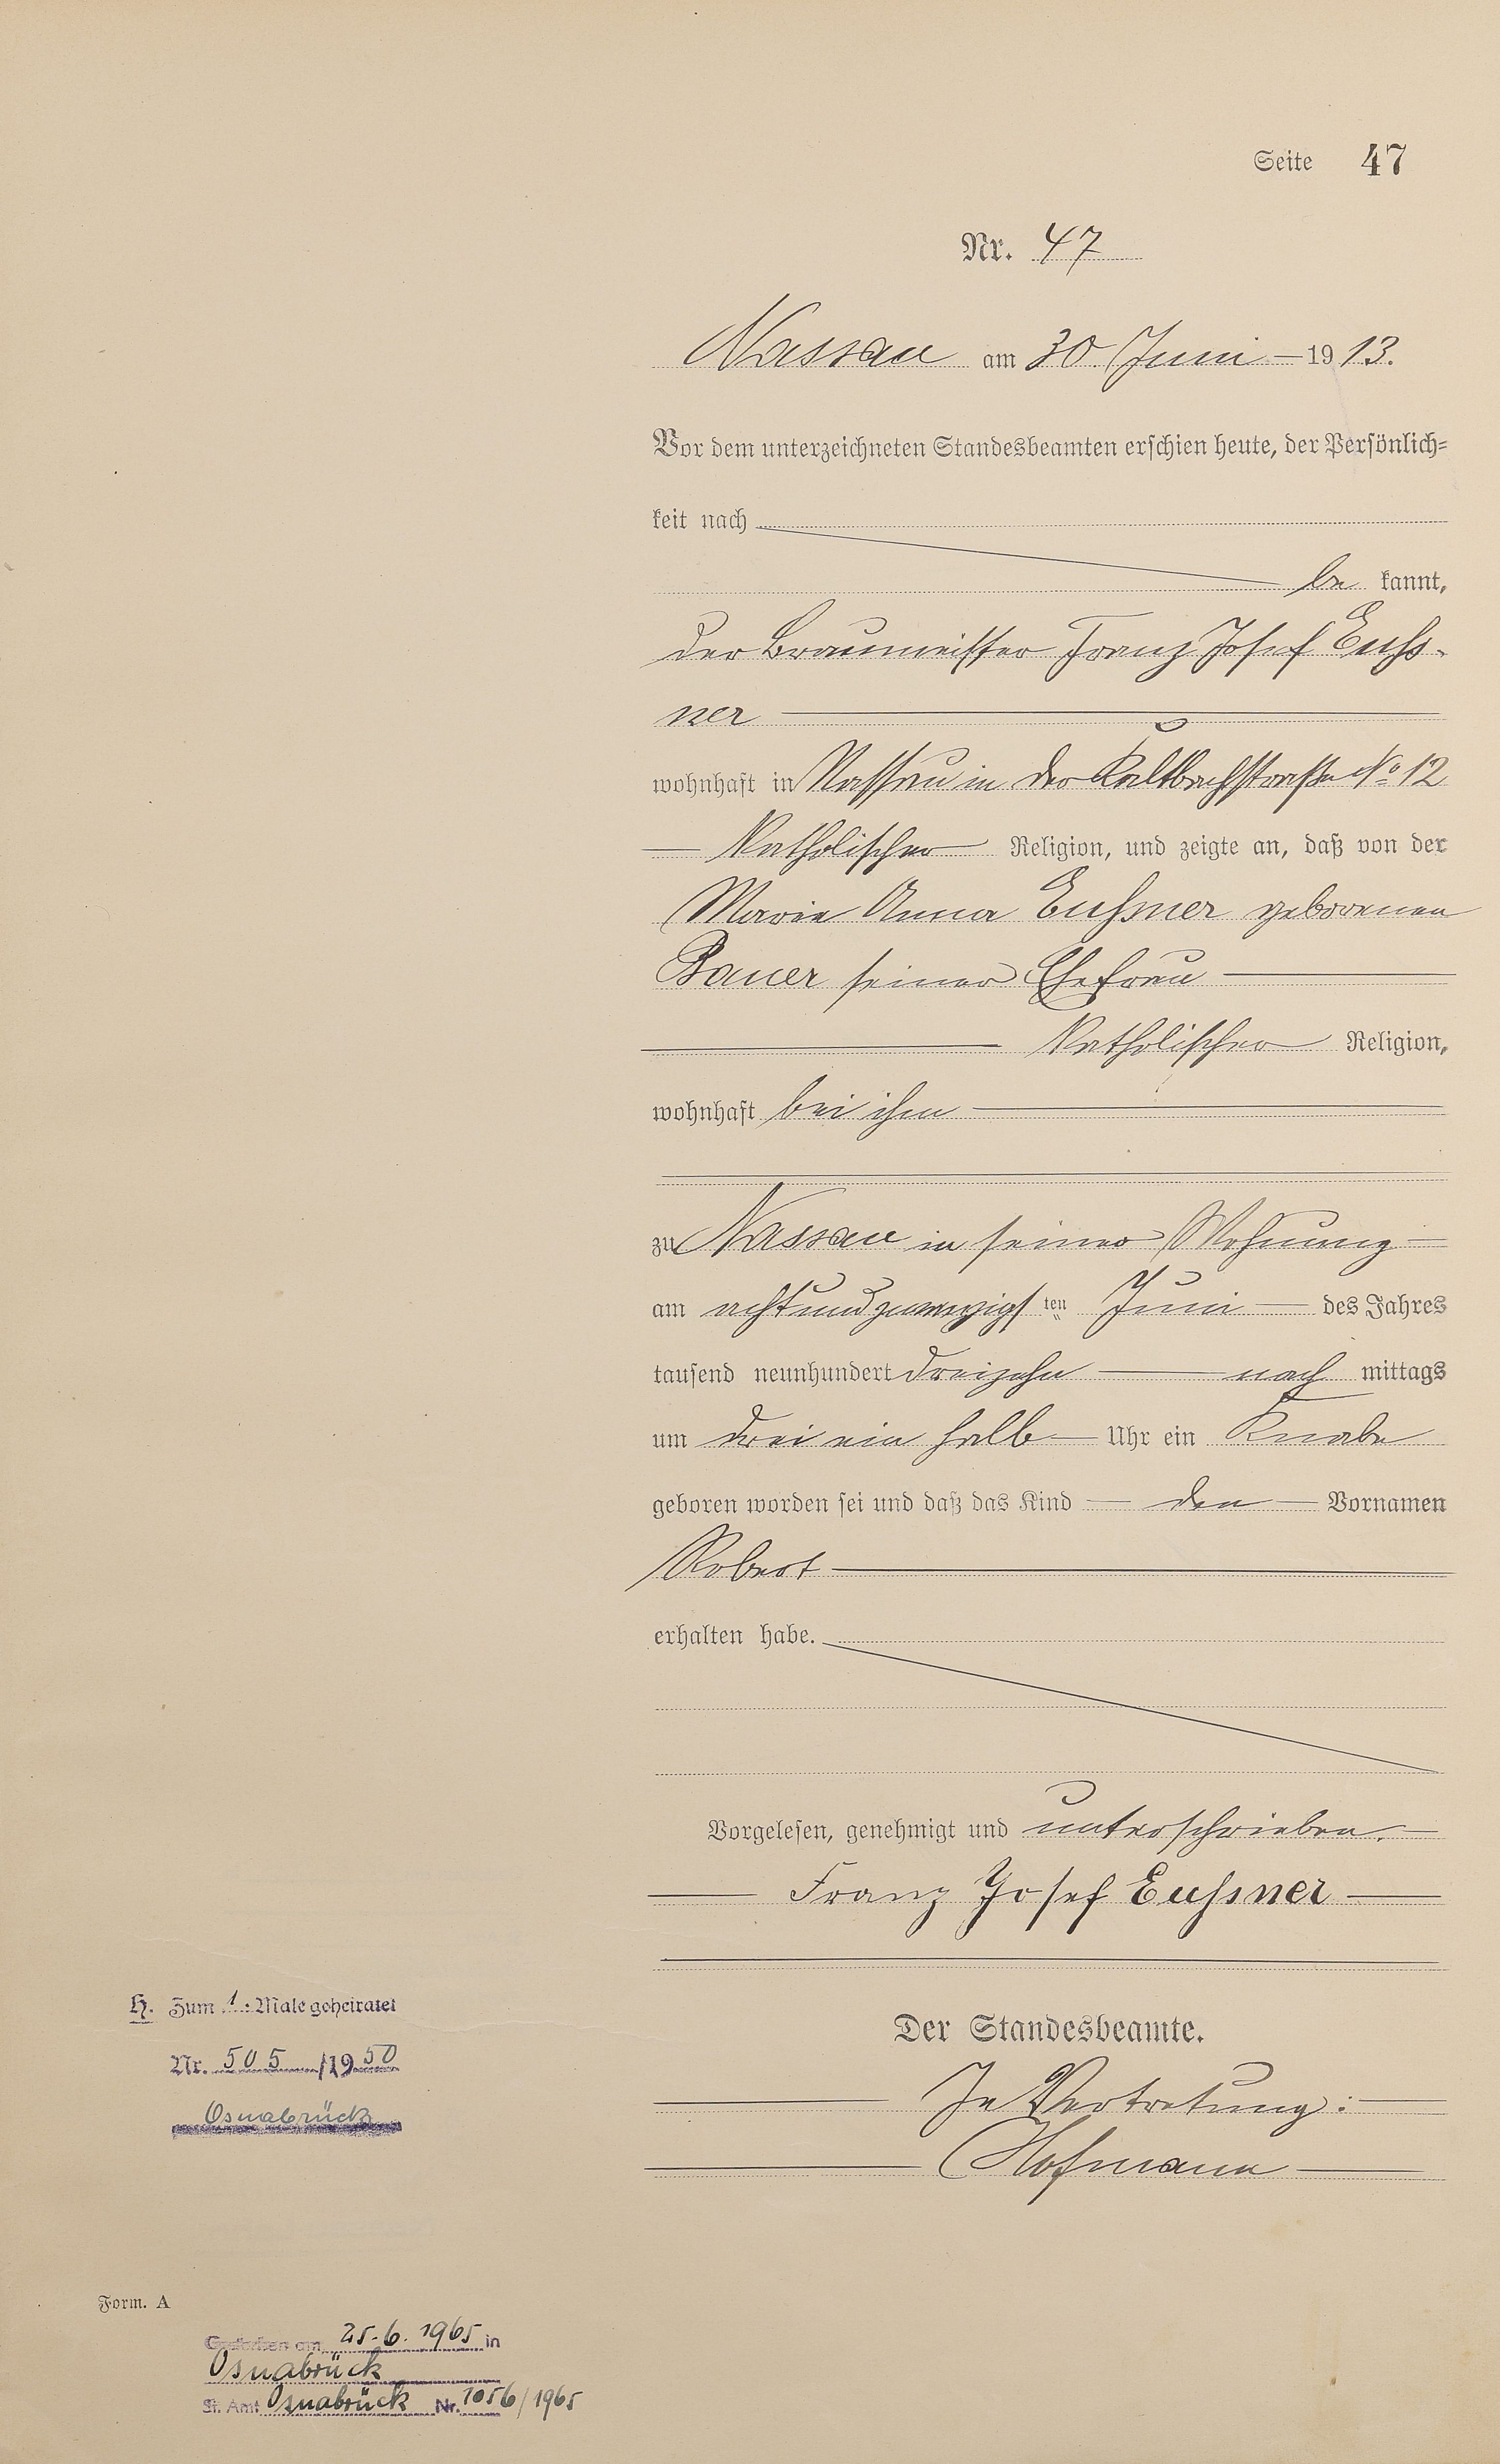 Seite 47
Nr. 47
Nassau am 30. Juni 1913.
Vor dem unterzeichneten Standesbeamten erschien heute, der Persönlich-
keit nach
be kannt,
der Braumeister Franz Josef Eußs-
ner
wohnhaft in Nassau in der Kaltbachstraße No 12
Katholischer Religion, und zeigte an, daß von der
Marie Anna Eußner geborenen
Bauer seiner Ehefrau
Katholischer Religion,
wohnhaft bei ihm
zu Nassau in seiner Wohnung
am achtundzwanzigsten Juni des Jahres
tausend neunhundert dreizehn nach mittags
um drei ein halb Uhr ein Knabe
geboren worden sei und daß das Kind den Vornamen
Robert
erhalten habe.
Vorgelesen, genehmigt und unterschrieben.
Franz Josef Eußner
Der Standesbeamte.
In Vertretung:
Hofmann
H. Zum 1. Male geheiratet
Nr. 505/1950
Osnabrück
Form. A
Gestorben am 25.6.1965 in
Osnabrück
St. Amt Osnabrück Nr. 1056/1965